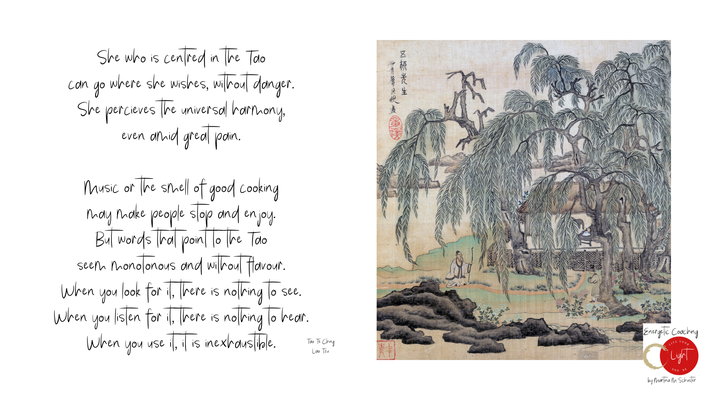 She who is centred in the Tao
can go where she wishes, without danger.
She percieves the universal harmony,
even amid great pain.
Music or the smell of good cooking
may make people stop and enjoy.
But words that point to the Tao
seem monotonous and without flavour.
When you look for it, there is nothing to see.
When you listen for it, there is nothing to hear.
When you use it, it is inexhaustible.
Tao Te Ching
Lao Tzu
五柳先生
Energetic Coaching
Light